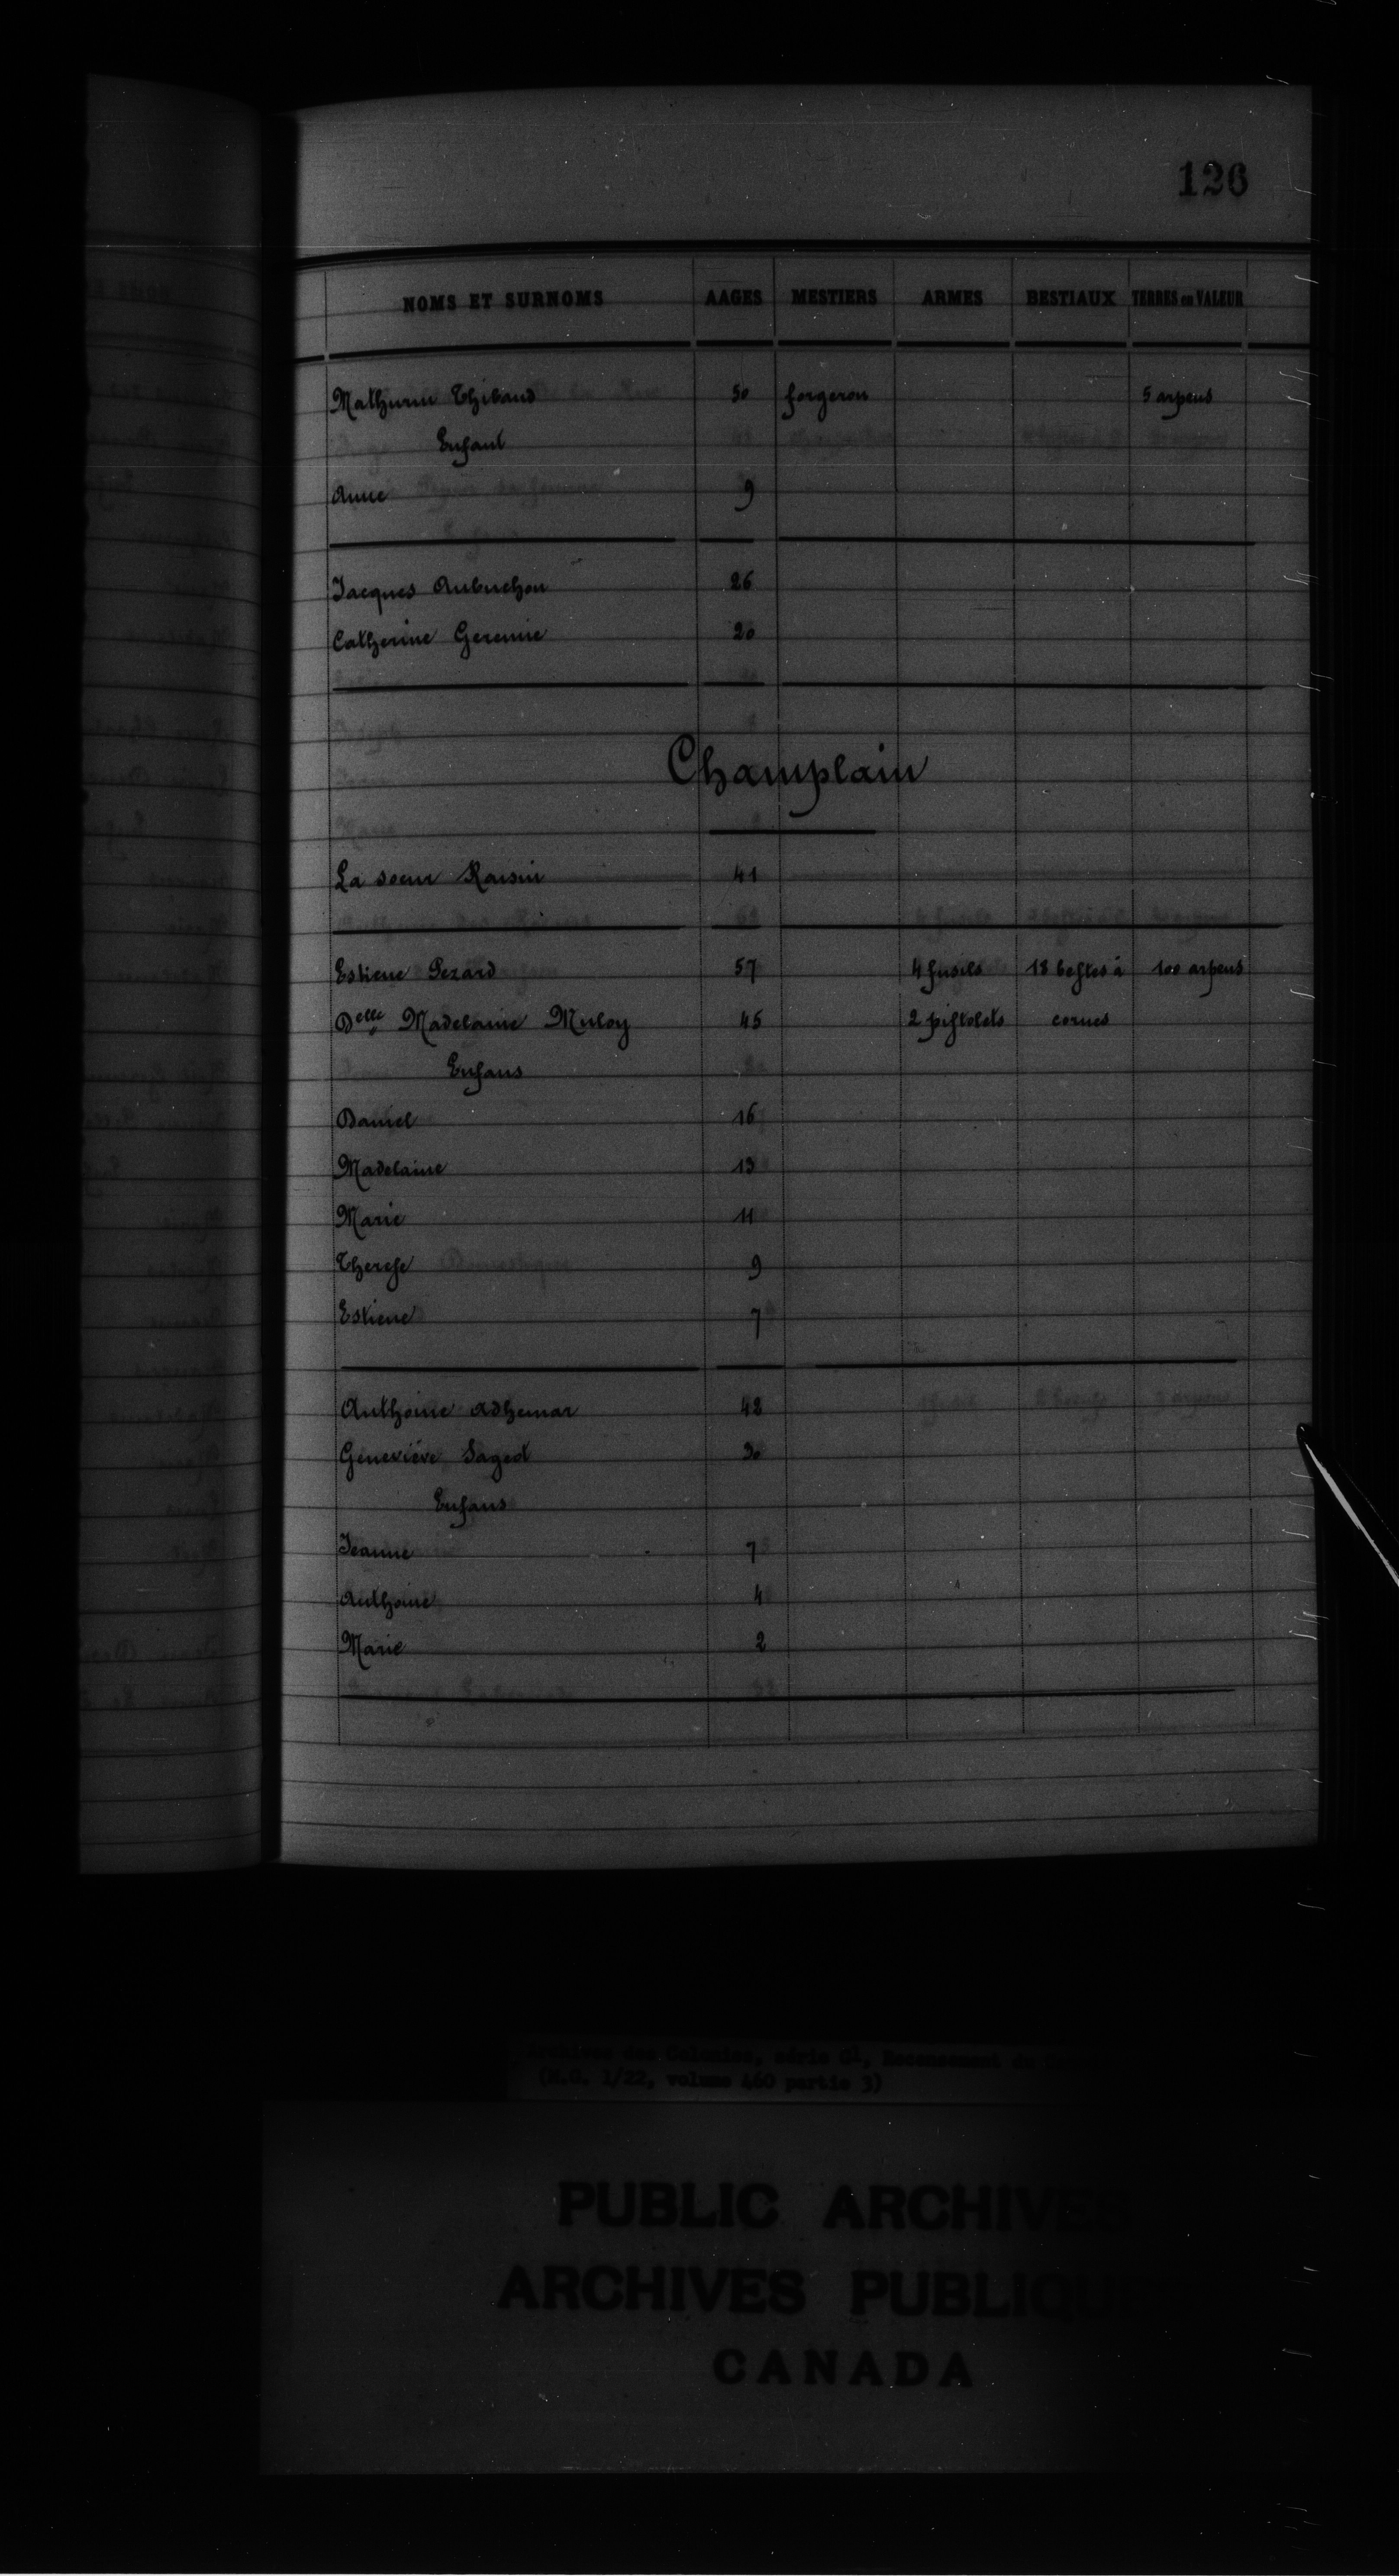 126
NOMS ET SURNOMS AAGES MESTIERS ARMES BESTIAUX TERRES en VALEUR
Mathurin Thibaud 50 forgeron 5 arpens
Enfant
Anne 9
Jacques Aubuchon 26
Catherine Geremie 20
Champlain
La soeur Raisin 41
Estiene Pezard 57 4 fusils 18 bestes à 100 arpens
Delle Madelaine Muloy 45 2 pistolets cornes
Enfans
Daniel 16
Madelaine 13
Marie 11
Therese 9
Estiene 7
Anthoine Adhemar 42
Géneviéve Saged 30
Enfans
Jeanne 7
Anthoine 4
Marie 2
des Colonies, série G1, Recensement
(M.G. 1/22, volume 460 partie 3)
PUBLIC ARCHIVES
ARCHIVES PUBLIQUES
CANADA